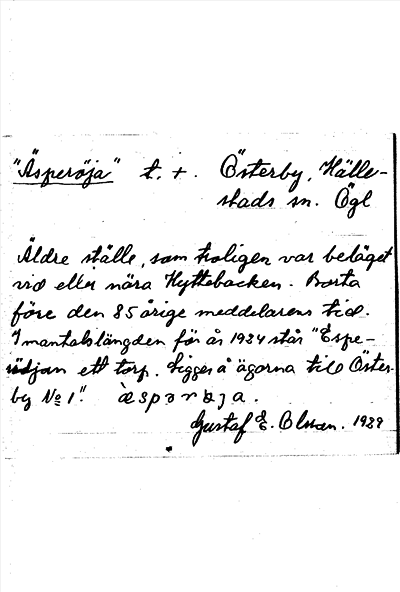 "Äsperöja" t. +. Österby, Hälle-
stads sn. Ögl
Äldre ställe, som troligen var beläget
vid eller nära Hyttebacken. Borta
före den 85 årige meddelarens tid.
I mantalslängden för år 1924 står "Espe-
rödjan ett torp. Ligger å ägorna till Öster-
by No 1."
Gustaf E. Olsson. 1929